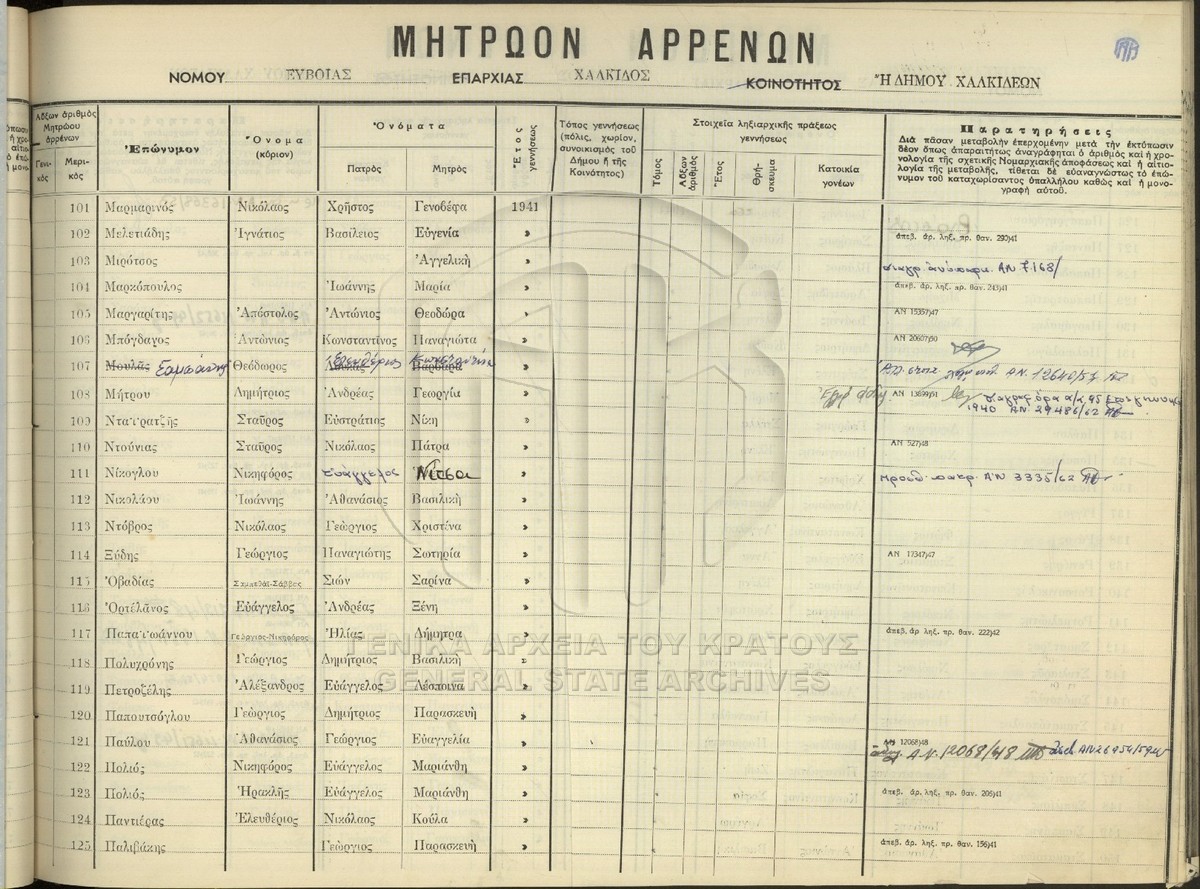 ΜΗΤΡΩΟΝ ΑΡΡΕΝΩΝ
ΝΟΜΟΥ ΕΥΒΟΙΑΣ ΕΠΑΡΧΙΑΣ ΧΑΛΚΙΔΟΣ ΚΟΙΝΟΤΗΤΟΣ Ἢ ΔΗΜΟΥ ΧΑΛΚΙΔΕΩΝ
Αὔξων ἀριθμὸς Μητρώου ἀρρένων
Γενικὸς Μερικὸς
Ἐπώνυμον
Ὄνομα (κύριον)
Ὀνόματα
Πατρὸς Μητρὸς
Ἔτος γεννήσεως
Τόπος γεννήσεως (πόλις, χωρίον, συνοικισμὸς τοῦ Δήμου ἢ τῆς Κοινότητος)
Στοιχεῖα ληξιαρχικῆς πράξεως γεννήσεως
Τόμος Αὔξων ἀριθμὸς Ἔτος Θρήσκευμα Κατοικία γονέων
Παρατηρήσεις
Διὰ πᾶσαν μεταβολὴν ἐπερχομένην μετὰ τὴν ἐκτύπωσιν
δέον ὅπως ἀπαραιτήτως ἀναγράφηται ὁ ἀριθμὸς καὶ ἡ χρο-
νολογία τῆς σχετικῆς Νομαρχιακῆς ἀποφάσεως καὶ ἡ αἰτιο-
λογία τῆς μεταβολῆς, τίθεται δὲ εὐαναγνώστως τὸ ἐπώ-
νυμον τοῦ καταχωρίσαντος ὑπαλλήλου καθὼς καὶ ἡ μονο-
γραφὴ αὐτοῦ.
101 Μαρμαρινός Νικόλαος Χρῆστος Γενοβέφα 1941
102 Μελετιάδης Ἰγνάτιος Βασίλειος Εὐγενία » ἀπεβ. ἀρ. ληξ. πρ. θαν. 290)41
103 Μιρότσος Ἀγγελικὴ » ΑΝ
104 Μαρκόπουλος Ἰωάννης Μαρία » ἀπεβ. ἀρ. ληξ. πρ. θαν. 243)41
105 Μαργαρίτης Ἀπόστολος Ἀντώνιος Θεοδώρα » ΑΝ 15357)47
106 Μπόγδανος Ἀντώνιος Κωνσταντῖνος Παναγιότα » ΑΝ 20607)50
107 Μουλᾶς Θεόδορος Ἐλευθέριος Κωνσταντίνα Βαρβάρα » ΑΝ. 12640/5
108 Μήτρου Δημήτριος Ἀνδρέας Γεωργία » ΑΝ 13699)51
109 Νταϊρατζῆς Σταῦρος Εὐστράτιος Νίκη » 1940 ΑΝ 29486/62
110 Ντούνιας Σταῦρος Νικόλαος Πάτρα » ΑΝ 527)48
111 Νίκογλου Νικηφόρος Εὐάγγελος Νίτσα » προσθ. πατρ. ΑΝ 3335/62
112 Νικολάου Ἰωάννης Ἀθανάσιος Βασιλικὴ »
113 Ντόβρος Νικόλαος Γεώργιος Χριστίνα »
114 Ξύδης Γεώργιος Παναγιώτης Σωτηρία » ΑΝ 17347)47
115 Ὀβαδίας Σαμπεθάϊ-Σάββας Σιών Σαρίνα »
116 Ὀρτελᾶνος Εὐάγγελος Ἀνδρέας Ξένη »
117 Παπαϊωάννου Γεώργιος-Νικηφόρος Ἠλίας Δήμητρα » ἀπεβ. ἀρ ληξ. πρ. θαν. 222)42
118 Πολυχρόνης Γεώργιος Δημήτριος Βασιλικὴ »
119 Πετροζέλης Ἀλέξανδρος Εὐάγγελος Δέσποινα »
120 Παπουτσόγλου Γεώργιος Δημήτριος Παρασκευὴ »
121 Παύλου Ἀθανάσιος Γεώργιος Εὐαγγελία » ΑΝ 12068)48
Α.Ν. 12068/48
122 Πολιός Νικηφόρος Εὐάγγελος Μαριάνθη »
123 Πολιός Ἡρακλῆς Εὐάγγελος Μαριάνθη » ἀπεβ. ἀρ. ληξ. πρ. θαν. 206)41
124 Παντιέρας Ἐλευθέριος Νικόλαος Κούλα »
125 Παλιβάκης Γεώργιος Παρασκευὴ » ἀπεβ. ἀρ. ληξ. πρ. θαν. 156)41
ΓΕΝΙΚΑ ΑΡΧΕΙΑ ΤΟΥ ΚΡΑΤΟΥΣ
GENERAL STATE ARCHIVES